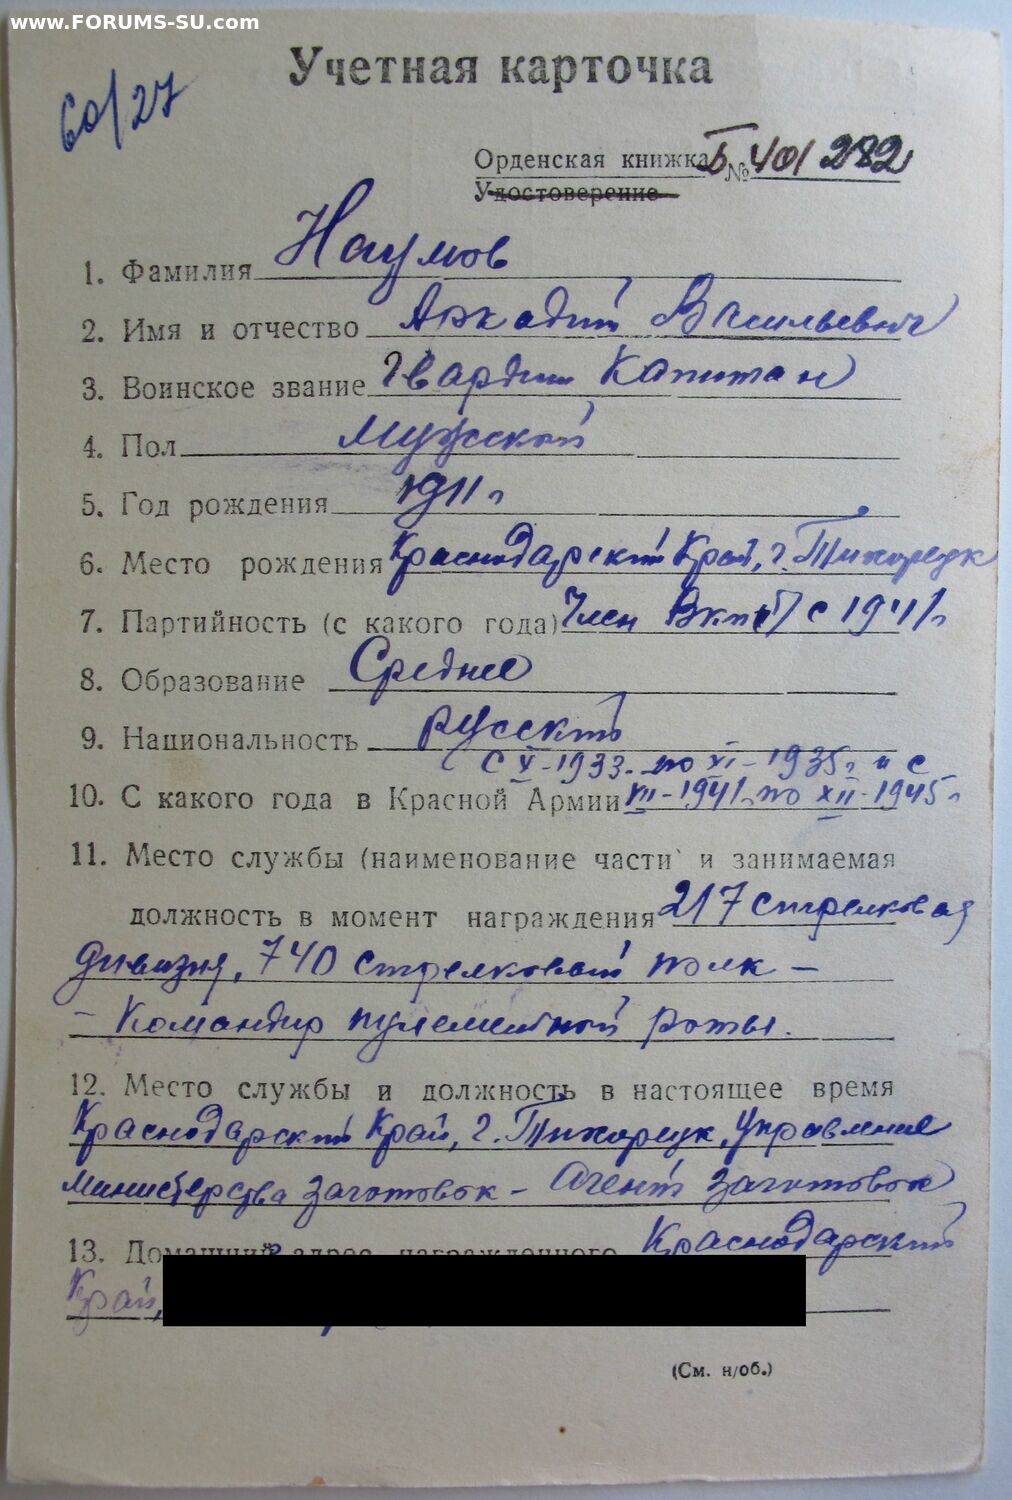 www.FORUMS-SU.com
Учетная карточка
60/27
Орденская книжка Б № 401282
Удостоверение
1. Фамилия Наумов
2. Имя и отчество Аркадий Васильевич
3. Воинское звание Гвардии Капитан
4. Пол Мужской
5. Год рождения 1911 г
6. Место рождения Краснодарский Край, г. Тихорецк
7. Партийность (с какого года) Член ВКП(б) с 1941 г
8. Образование Среднее
9. Национальность русский
С X-1933. по XI-1935 г и с
10. С какого года в Красной Армии VIII-1941 г. по XII-1945 г
11. Место службы (наименование части и занимаемая
должность в момент награждения 217 стрелковая
дивизия, 740 стрелковый полк –
– Командир пулеметной роты.
12. Место службы и должность в настоящее время
Краснодарский Край, г. Тихорецк, Управление
Министерства заготовок – Агент заготовок
13. Домашний адрес награжденного Краснодарский
Край,
(См. н/об.)